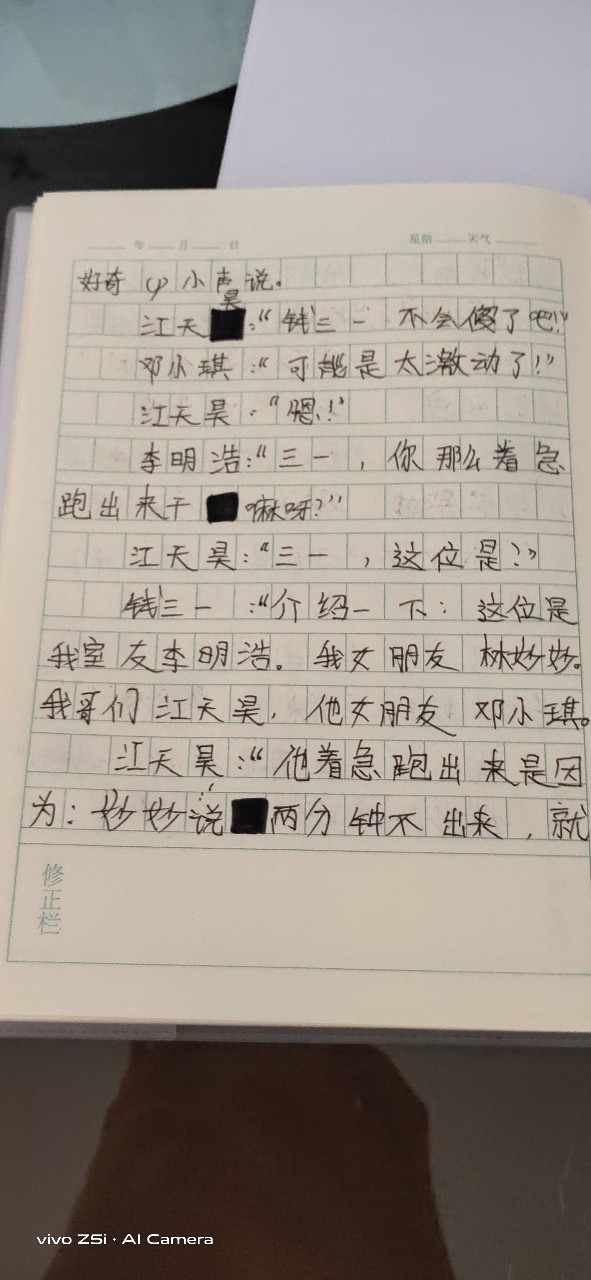 年 月 日 星期 天气
好奇心小声说。
江天昊:“钱三一 不会傻了吧!”
邓小琪:“可能是太激动了!”
江天昊:“嗯!”
李明浩:“三一,你那么着急
跑出来干嘛呀?”
江天昊:“三一,这位是?”
钱三一:“介绍一下:这位是
我室友李明浩。我女朋友 林妙妙。
我哥们江天昊,他女朋友 邓小琪。
江天昊:“他着急跑出来是因
为:妙妙说:“两分钟不出来,就
修正栏
vivo Z5i · AI Camera